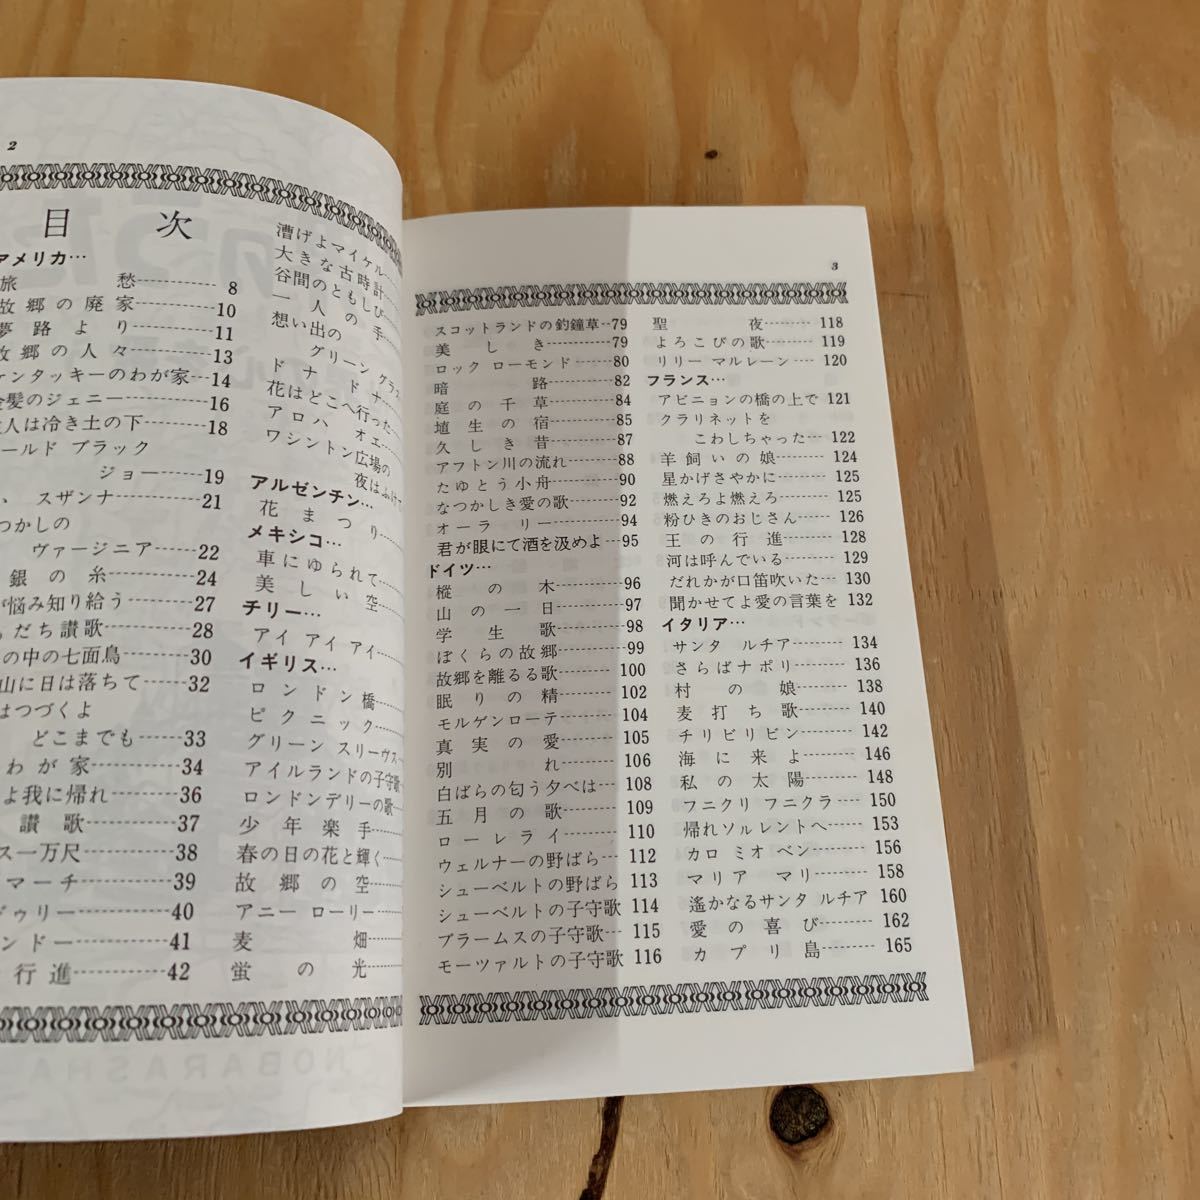 2
目次
アメリカ…
旅愁……8
故郷の廃家……10
夢路より……11
故郷の人々……13
ケンタッキーのわが家…14
金髪のジェニー……16
人は冷き土の下……18
ールド ブラック
ジョー……19
スザンナ……21
つかしの
ヴァージニア……22
銀の糸……24
が悩み知り給う……27
だち讃歌……28
の中の七面鳥……30
山に日は落ちて……32
はつづくよ
どこまでも……33
わが家……34
よ我に帰れ……36
讃歌……37
ス一万尺……38
マーチ……39
ドゥリー……40
ンドー……41
行進……42
漕げよマイケル…
大きな古時計…
谷間のともしび…
一人の手…
想い出の
グリーン グラス
ドナドナ…
花はどこへ行った…
アロハ オエ…
ワシントン広場の
夜はふけて
アルゼンチン…
花まつり…
メキシコ…
車にゆられて…
美しい空…
チリー…
アイ アイ アイ…
イギリス…
ロンドン橋…
ピクニック…
グリーン スリーヴス…
アイルランドの子守歌…
ロンドンデリーの歌…
少年楽手…
春の日の花と輝く…
故郷の空…
アニー ローリー…
麦畑…
蛍の光…
3
スコットランドの釣鐘草…79
美しき……79
ロック ローモンド…80
暗路……82
庭の千草……84
埴生の宿……85
久しき昔……87
アフトン川の流れ……88
たゆとう小舟……90
なつかしき愛の歌……92
オーラ リー……94
君が眼にて酒を汲めよ…95
ドイツ…
樅の木……96
山の一日……97
学生歌……98
ぼくらの故郷……99
故郷を離るる歌……100
眠りの精……102
モルゲンローテ……104
真実の愛……105
別れ……106
白ばらの匂う夕べは…108
五月の歌……109
ローレライ……110
ウェルナーの野ばら…112
シューベルトの野ばら 113
シューベルトの子守歌 114
ブラームスの子守歌…115
モーツァルトの子守歌 116
聖夜……118
よろこびの歌……119
リリー マルレーン…120
フランス…
アビニョンの橋の上で 121
クラリネットを
こわしちゃった…122
羊飼いの娘……124
星かげさやかに……125
燃えろよ燃えろ……125
粉ひきのおじさん……126
王の行進……128
河は呼んでいる……129
だれかが口笛吹いた…130
聞かせてよ愛の言葉を 132
イタリア…
サンタ ルチア……134
さらばナポリ……136
村の娘……138
麦打ち歌……140
チリビリビン……142
海に来よ……146
私の太陽……148
フニクリ フニクラ……150
帰れソルレントへ……153
カロ ミオ ベン……156
マリア マリ……158
遙かなるサンタ ルチア 160
愛の喜び……162
カプリ島……165